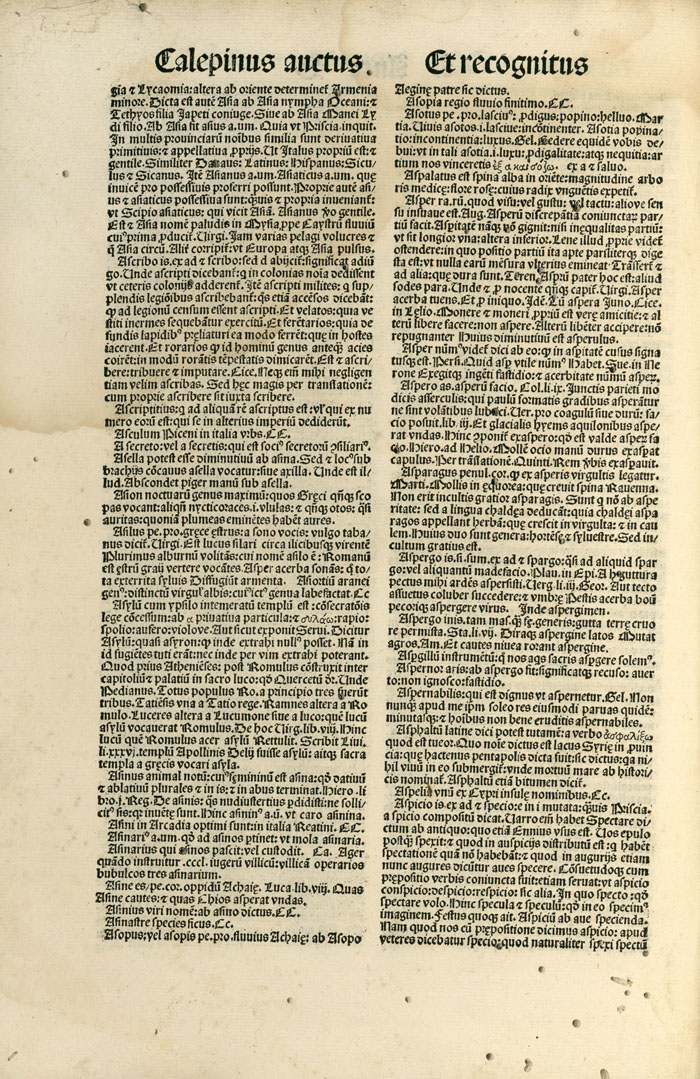 Calepinus auctus.
Et recognitus
gia & Lycaomia: altera ab oriente determinet̃ Armenia
minore. Dicta est autẽ Asia ab Asia nympha Oceani: &
Tethyos filia Iapeti coniuge. Siue ab Asia Manei Ly
di filio. Ab Asia fit asius a.um. Quia vt Priscia. inquit.
In multis prouinciarũ noibus similia sunt deriuatiua
primitiuis: & appellatiua ꝓprijs. Ut Italus propriũ est: &
gentile. Similiter Damaus: Latinus: Hispanus: Sicu
lus & Sicanus. Itẽ Asianus a.um. Asiaticus a.um. que
inuicẽ pro possessiuis proferri possunt. Proprie autẽ asi
us & asiaticus possessiua sunt: quis & propria inueniant̃:
vt Scipio asiaticus: qui vicit Asiã. Asianus ꝟo gentile.
Est & Asia nomẽ paludis in Mysia: ppe Caystrũ fluuiũ
cui⁹ prima ꝓducit̃. Uirgi. Iam varias pelagi volucres &
q̃ Asia circũ. Alij corripit̃: vt Europa atq̃ Asia pulsus.
Ascribo is. ex ad & scribo: sed d abijcit̃: significat adiũ
go. Unde ascripti dicebant̃: q in colonias noia dedissent
vt ceteris colonijs adderent̃. Itẽ ascripti milites: q sup
plendis legiõibus ascribebant̃: q̃s etiã accẽsos dicebãt:
q ad legionũ censum essent ascripti. Et velatos: quia ve
stiti inermes sequebãtur exercitũ. Et ferẽtarios: quia de
fundis lapidib⁹ preliaturi ea modo ferrẽt: que in hostes
iacerent. Et rorarios q id hominũ genus anteq̃ acies
coirẽt: in modũ rorãtis tẽpestatis dimicarẽt. Est & ascri
bere: tribuere & imputare. Cice. Neq̃ eim mihi negligen
tiam velim ascribas. Sed hęc magis per translationẽ:
cum proprie ascribere sit iuxta scribere.
Ascriptitius: q ad aliquã rẽ ascriptus est: vl̃ qui ex nu
mero eorũ est: qui se in alterius imperiũ dediderũt.
Asculum Piceni in italia vrbs. CC.
A secreto: vel a secretis: qui est soci⁹ secretorũ ↄ̃siliari⁹.
Asella potest esse diminutiuũ ab asina. Sed & loc⁹ sub
brachijs cõcauus asella vocatur: siue axilla. Unde est il-
lud. Abscondet piger manũ sub asella.
Asion noctuarũ genus maximũ: quos Gręci q̃siq̃ sco
pas vocant: aliqñ nycticoraces .i. vlulas: & q̃siq̃ otos: q̃si
auritas: quoniã plumeas eminẽtes habẽt aures.
Asilus pe. pro. gręce ęstrus: a sono vocis: vulgo taba-
nus dicit̃. Uirg. Est lucus silari circa ilicibusq̃ virentẽ
Plurimus alburnũ volitãs: cui nomẽ asilo ẽ: Romanũ
est ęstrũ graij vertere vocãtes. Asper acerba sonãs: q̃ to-
ta exterrita syluis Diffugiũt armenta. Asiotiũ aranei
gen⁹: distinctũ virgul̃ albis: cui⁹ ict⁹ genua labefactat. CC
Asylũ cum ypsilo intemeratũ templũ est: cõsecratõis
lege cõcessum: ab α priuatiua particula: & συλάω: rapio:
spolio: aufero: violove. Aut sicut exponit Serui. Dicitur
Asylũ: quasi asyron: q̃ inde extrahi null⁹ posset. Nã in
id fugiẽtes tuti erãt: nec inde per vim extrahi poterant.
Quod prius Athenienses: post Romulus cõstruxit inter
capitoliũ & palatiũ in sacro luco: qd Quercetũ dr̃. Unde
Pedianus. Totus populus Ro. a principio tres fuerũt
tribus. Tatiẽsis vna a Tatio rege. Ramnes altera a Ro
mulo. Luceres altera a Lucumone siue a luco: quẽ lucũ
asylũ vocauerat Romulus. De hoc Uirg. lib. viij. Hinc
lucũ quẽ Romulus acer asylũ Rettulit. Scribit Liui.
li. xxxv. templũ Apollinis Delij suisse asylũ: aitq̃ sacra
templa a gręcis vocari asyla.
Asinus animal notũ: cui⁹ fẽmininũ est asina: qd datiuũ
& ablatiuũ plurales & in is: & in abus terminat. Hiero. li
bro. j. Reg. De asinis: q̃s nudiustertius ꝑdidisti: ne solli-
cit⁹ sis: q̃ inuẽte sunt. Hinc asinin⁹ a.ũ. vt caro asinina.
Asini in Arcadia optimi sunt: in italia Reatini. CC.
Asinari⁹ a.um. qd ad asinos ptinet: vt mola asinaria.
Asinarius qui asinos pascit: vel custodit. Ca. Ager
quãdo instruitur .cccl. iugerũ villicũ: villicã operarios
bubulcos tres asinarium.
Asine es / pe. cor. oppidũ Achaię. Luca. lib. viij. Quas
Asine cautes: & quas Chios asperat vndas.
Asinius viri nomẽ: ab asino dictus. CC.
Asinastre species ficus. Cc.
Asopus: vel asopis pe. pro. fluuius Achaię: ab Asopo
Aeginę patre sic dictus.
Asopia regio fluuio finitimo. CC.
Asotus pe. pro. lasciu⁹: ꝓdigus: popino: helluo. Mar
tia. Uiuis asotos .i. lasciue: incõtinenter. Asotia popina-
tio: incontinentia: luxus. Gel. Sedere equidẽ vobis de-
bui: vt in tali asotia .i. luxu: ꝓdigalitate: atq̃ nequitia: ar
tium nos vinceretis ex a & saluo.
Aspalatus est spina alba in oriẽte: magnitudine arbo
ris medicę: flore rosę: cuius radix vnguẽtis expetit̃.
Asper ra.rũ. quod visu: vel gustu: vel tactu: alioue sen
su insuaue est. Aug. Asperũ discrepãtiã coniunctar̃ par-
tiũ facit. Aspitatẽ nãq̃ ꝟo gignit: nisi inequalitas partiũ:
vt sit longior vna: altera inferior. Lene illud ꝓprie videt̃
ostendere: in quo positio partiũ ita apte parsiliterq̃ dige
sta est: vt nulla earũ mẽsura vlterius emineat. Trãsfert̃ &
ad alia: que dura sunt. Teren. Asper pater hoc est: aliud
sodes para. Unde & ꝓ nocente q̃siq̃ capit̃. Uirgi. Asper
acerba tuens. Et ꝓ iniquo. Idẽ. Tũ aspera Iuno. Cice.
in Lęlio. Monere & moneri ꝓpriũ est verę amicitię: & al
terũ libere facere: non aspere. Alterũ libẽter accipere: nõ
repugnanter. Huius diminutiuũ est asperulus.
Asper num⁹ videt̃ dici ab eo: q̃ in aspitatẽ cusus signa
tusq̃ est. Persi. Quid asp vtile num⁹ habet. Sue. in Ne
rone. Exegitq̃ ingẽti fastidio: & acerbitate nũmũ asper̃.
Aspero as. asperũ facio. Col. li. ix. Iunctis parieti mo
dicis asserculis: qui paulũ formatis gradibus asperãtur
ne sint volãtibus lubrici. Uer. pro coagulũ siue durũ: fa-
cio posuit. lib. iij. Et glacialis hyems aquilonibus aspe-
rat vndas. Hinc ↄ̃ponit̃ exaspero: qd est valde asper̃ fa
cio. Hiero. ad Helio. Mollẽ ocio manũ durus exaspat
capulus. Per translationẽ. Quinti. Rem ꝟbis exaspauit.
Asparagus penul. cor. q̃ ex asperis virgultis legatur.
Marti. Mollis in ęquorea: que creuit spina Rauenna.
Non erit incultis gratior asparagis. Sunt q nõ ab aspe
ritate: sed a lingua chaldęa deducãt: quia chaldęi aspa
ragos appellant herbã: que crescit in virgulta: & in cau
lem. Huius duo sunt genera: hortẽse: & syluestre. Sed in-
cultum gratius est.
Aspergo is. si. sum. ex ad & spargo: q̃si ad aliquid spar
go: vel aliquantũ madefacio. Plau. in Epi. A hguttura
pectus mihi ardẽs aspersisti. Uerg. li. iij. Geor. Aut tecto
assuetus coluber succedere: & vmbrę Pestis acerba boũ
pecoriq̃ aspergere virus. Inde aspergimen.
Aspergo inis. tam mas. q̃ fę. generis: gutta terrę cruo
re permista. Sta. li. vij. Diraq̃ aspergine latos Mutat
agros. Am. Et cautes niuea rorant aspergine.
Aspgillũ instrumẽtũ: q̃ nos aq̃s sacris aspgere solem⁹.
Aspernor aris: ab aspergo fit: significatq̃ recuso: auer
to: non ignosco: fastidio.
Aspernabilis: qui est dignus vt aspernetur. Gel. Non
nunq̃ apud me ipm soleo res eiusmodi paruas quidẽ:
minutasq̃: & hoibus non bene eruditis aspernabiles.
Asphaltũ latine dici potest tutamẽ: a verbo ἀσφαλίζω
quod est tueor. Quo noie dictus est lacus Syrię in ꝓuin
cia: que hactenus pentapolis dicta fuit: sic dictus: qa ni-
hil viuũ in eo submergit̃: vnde mortuũ mare ab histori-
cis nominat̃. Asphaltũ etiã bitumen dicit̃.
Aspelia vnũ ex Cypri insulę nominibus. Cc.
Aspicio is. ex ad & specio: e in i mutata: q̃uis Priscia.
a spicio compositũ dicat. Uarro eim habet Spectare di-
ctum ab antiquo: quo etiã Ennius vsus est. Uos epulo
postq̃ spexit: & quod in auspicijs distributũ est: q habẽt
spectationẽ quã nõ habebãt: & quod in augurijs etiam
nunc augures dicũtur aues specere. Cõsuetudoq̃ cum
prępositio verbis coniuncta fuit: etiam seruat̃: vt aspicio
conspicio: despicio: respicio: sic alia. In quo specto: qd
spectare volo. Hinc specula & speculũ: qd in eo specim⁹
imaginem. Festus quoq̃ ait. Aspiciũ ab aue specienda.
Nam quod nos cũ prępositione dicimus aspicio: apud
veteres dicebatur specio: quod naturaliter spexi spectũ